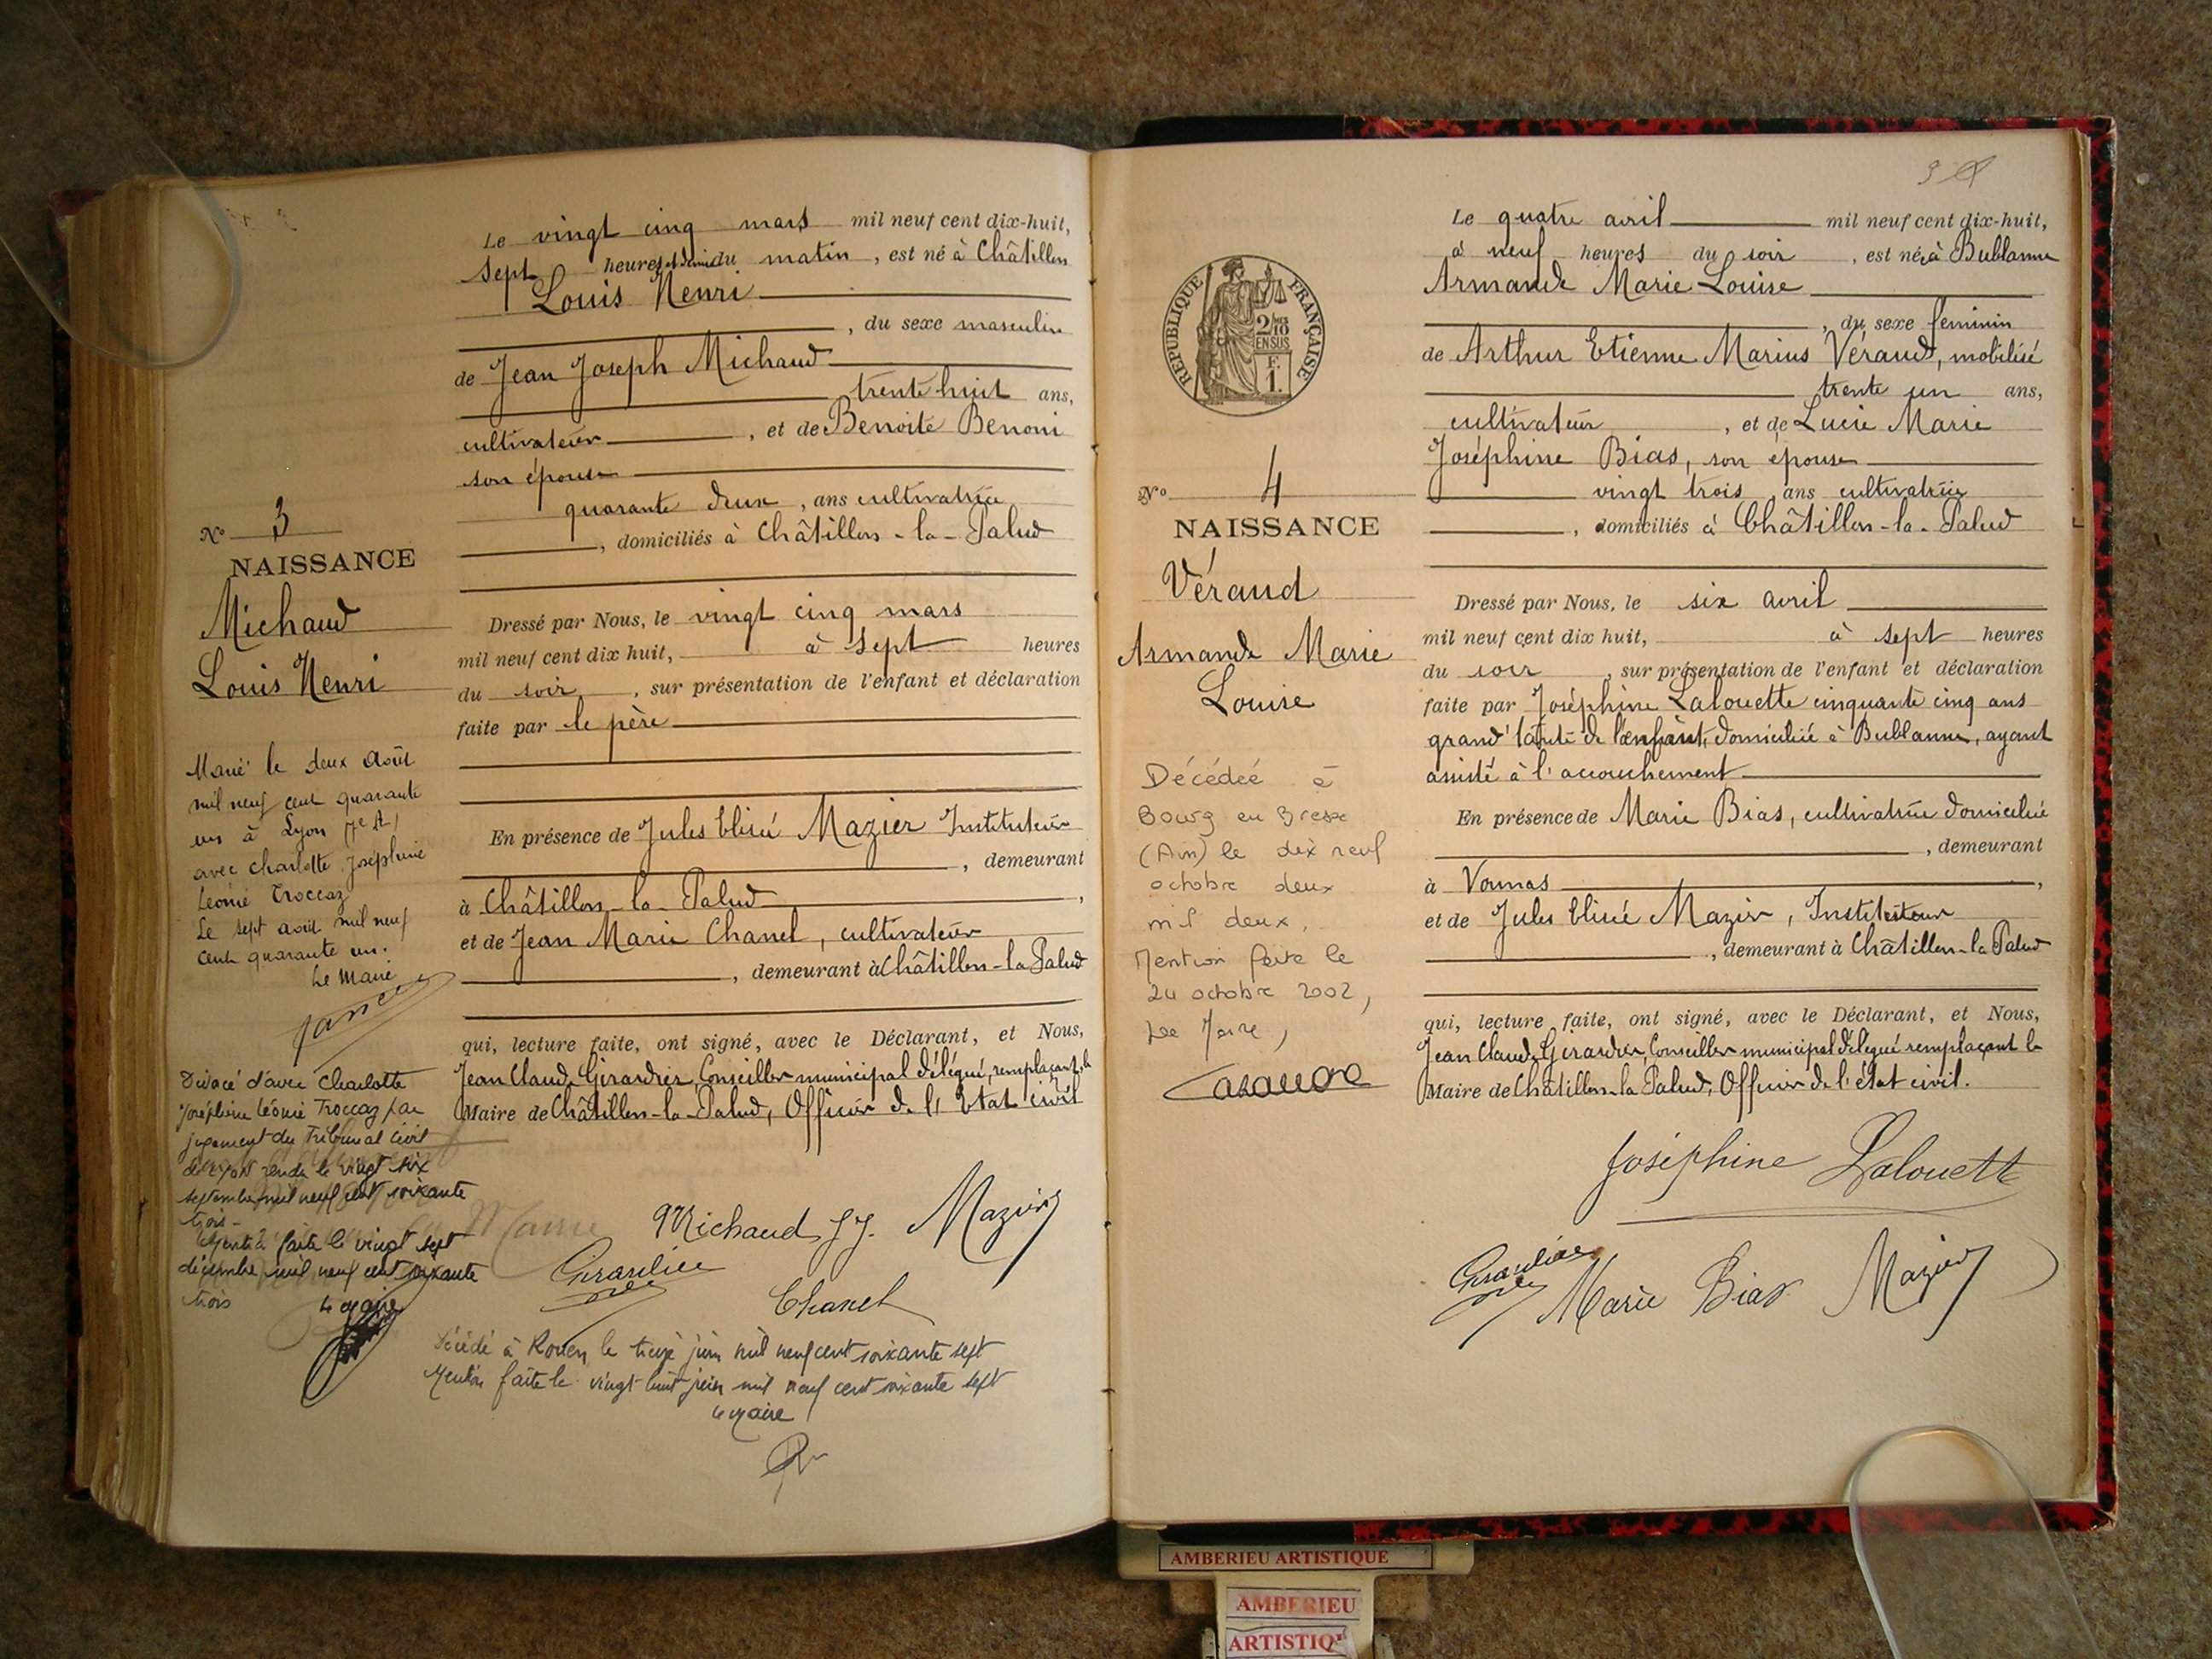 Le vingt cinq mars mil neuf cent dix-huit,
sept heures et demi du matin, est né à Châtillon
Louis Henri
, du sexe masculin
de Jean Joseph Michaud
trente huit ans,
cultivateur, et de Benoite Benoni
son épouse
quarante deux, ans cultivatrice
, domiciliés à Châtillon-la-Palud
No 3
NAISSANCE
Michaud
Louis Henri
Dressé par Nous, le vingt cinq mars
mil neuf cent dix huit, à sept heures
du soir, sur présentation de l'enfant et déclaration
faite par le père
En présence de Jules Elisée Mazier Instituteur
, demeurant
à Châtillon-la-Palud,
et de Jean Marie Chanel, cultivateur
, demeurant à Châtillon-la Palud
qui, lecture faite, ont signé, avec le Déclarant, et Nous,
Jean Claude Girardier, Conseiller municipal délégué, remplaçant le
Maire de Châtillon-la-Palud, Officier de l'Etat civil
Marié le deux Août
mil neuf cent quarante
un à Lyon 7e A!
avec Charlotte Joséphine
Léonie Troccaz
Le sept août mil neuf
cent quarante un.
Le Maire
Divorcé d'avec Charlotte
Joséphine Léonie Troccaz par
jugement du Tribunal civil
de rendu le vingt six
septembre mil neuf cent soixante
trois-
Mention faite le vingt sept
décembre mil neuf cent soixante
trois le Maire
Michaud J J. Mazier
Girardier
Chanel
Décédé à Rouen le treize juin mil neuf cent soixante sept
Mention faite le vingt huit juin mil neuf cent soixante sept
le Maire
REPUBLIQUE FRANÇAISE
2/10
EN SUS
F.
1.
No 4
NAISSANCE
Véraud
Armande Marie
Louise
Décédée à
Bourg en Bresse
(Ain) le dix neuf
octobre deux
mil deux,
Mention faite le
24 octobre 2002,
Le Maire,
Le quatre avril mil neuf cent dix-huit,
à neuf heures du soir, est née à Bublanne
Armande Marie Louise
, du sexe feminin
de Arthur Etienne Marius Véraud, mobilisé
trente un ans,
cultivateur, et de Lucie Marie
Joséphine Bias, son épouse
vingt trois, ans cultivatrice
, domiciliés à Châtillon-la-Palud
Dressé par Nous, le six avril
mil neuf cent dix huit, à sept heures
du soir, sur présentation de l'enfant et déclaration
faite par Joséphine Lalouette cinquante cinq ans
grand'tante de l'enfant, domiciliée à Bublanne, ayant
assisté à l'accouchement
En présence de Marie Bias, cultivatrice domiciliée
, demeurant
à Vonnas,
et de Jules Elisée Mazier, Instituteur
, demeurant à Châtillon-la Palud
qui, lecture faite, ont signé, avec le Déclarant, et Nous,
Jean Claude Girardier, Conseiller municipal délégué remplaçant le
Maire de Châtillon-la Palud, Officier de l'état civil.
Joséphine Lalouette
Girardier
Marie Bias Mazier
AMBERIEU ARTISTIQUE
AMBERIEU
ARTISTIQ